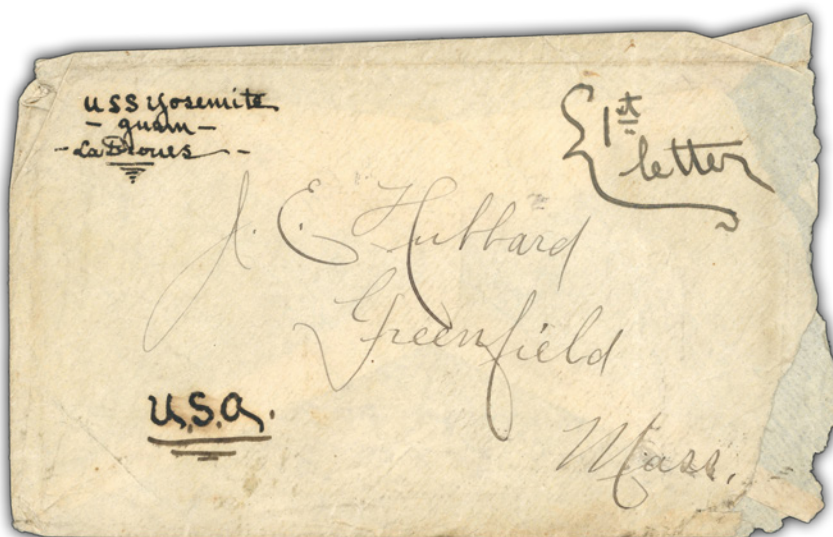 USS Yosemite
- guam -
- LaDrones -
1st
letter
J. E. Hubbard
Greenfield
Mass.
U.S.A.